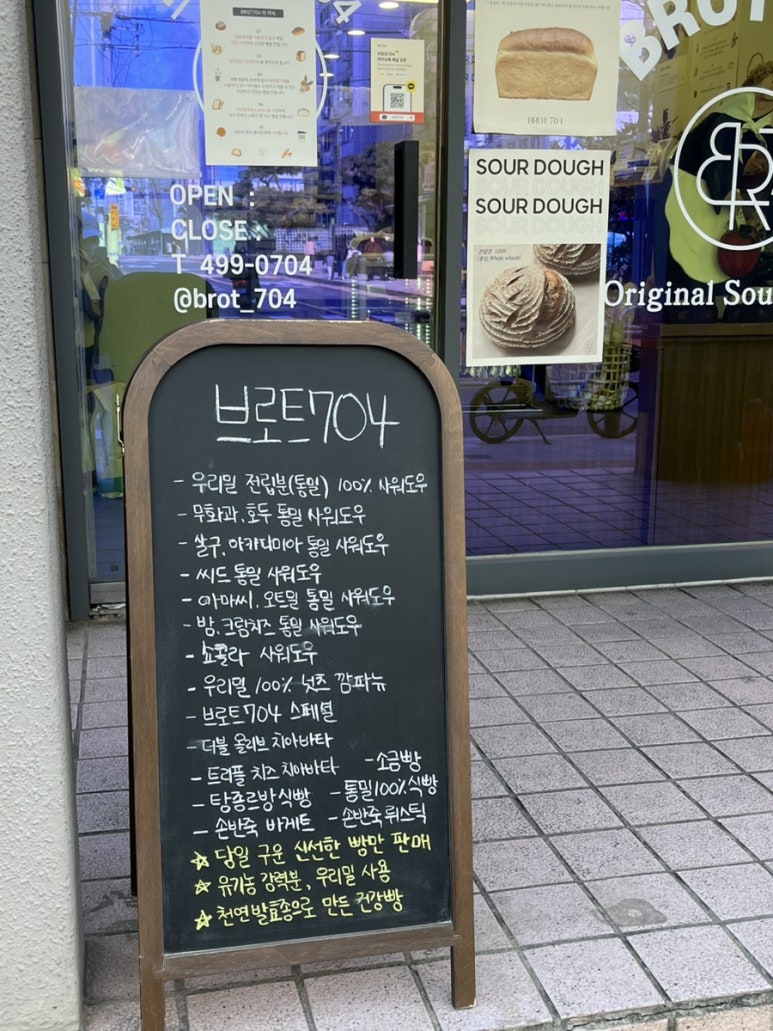 BROT704
브로트704
OPEN :
CLOSE :
T 499-0704
@brot_704
BROT 704
SOUR DOUGH
SOUR DOUGH
SOUR DOUGH
SOUR DOUGH
(통밀 Whole wheat)
BROT
BR
Original Sou
브로트704
- 우리밀 전립분(통밀) 100% 사워도우
- 무화과, 호두 통밀 사워도우
- 살구, 마카다미아 통밀 사워도우
- 씨드 통밀 사워도우
- 아마씨, 오트밀 통밀 사워도우
- 밤, 크림치즈 통밀 사워도우
- 쇼콜라 사워도우
- 우리밀 100% 넛츠 깜파뉴
- 브로트704 스페셜
- 더블 올리브 치아바타
- 트리플 치즈 치아바타 - 소금빵
- 탕종르방식빵 - 통밀100% 식빵
- 손반죽 바게트 - 손반죽 뤼스틱
☆ 당일 구운 신선한 빵만 판매
☆ 유기농 강력분, 우리밀 사용
☆ 천연발효종으로 만든 건강빵